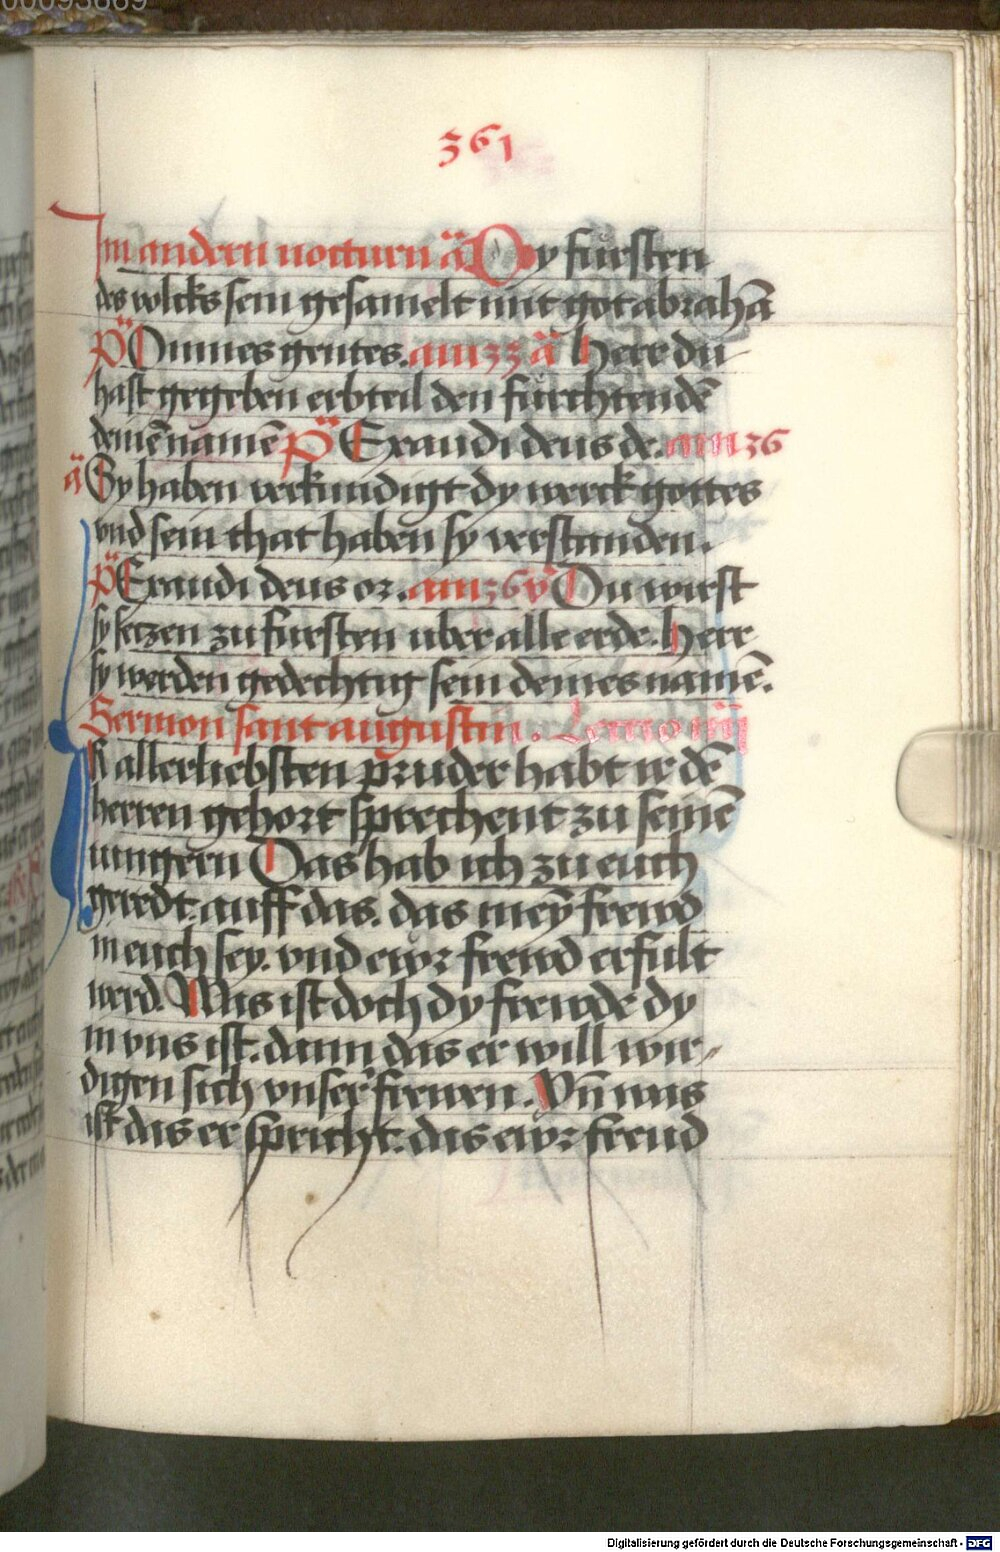 00093869
361
Im andern nocturn ā Dy fursten
des volcks sein gesamelt mit got abrahā
ps Omnes gentes. am 33 ā Herr du
hast gegeben erbteil den furchtendē
deinē namē ps Exaudi deus de. am 36
ā Sy haben verkundigt dy werck gottes
vnd sein that haben sy verstanden.
ps Exaudi deus or. am 36 v Du wirst
sy setzen zu fursten uber alle erde. Herr
sy werden gedechtig sein deines namē.
Sermon sant augustin. Lectio iiij
allerliebsten pruder habt ir dē
herren gehort sprechent zu seinē
iungern Das hab ich zu euch
geredt. auff das. das meȳ frewd
in euch sey. vnd ewr frewd erfult
werd. Was ist doch dy frewde dy
in vns ist. dann das er will wir-
digen sich vnser frewen. Vn̄ was
ist das er spricht. das ewr freud
Digitalisierung gefördert durch die Deutsche Forschungsgemeinschaft - DFG